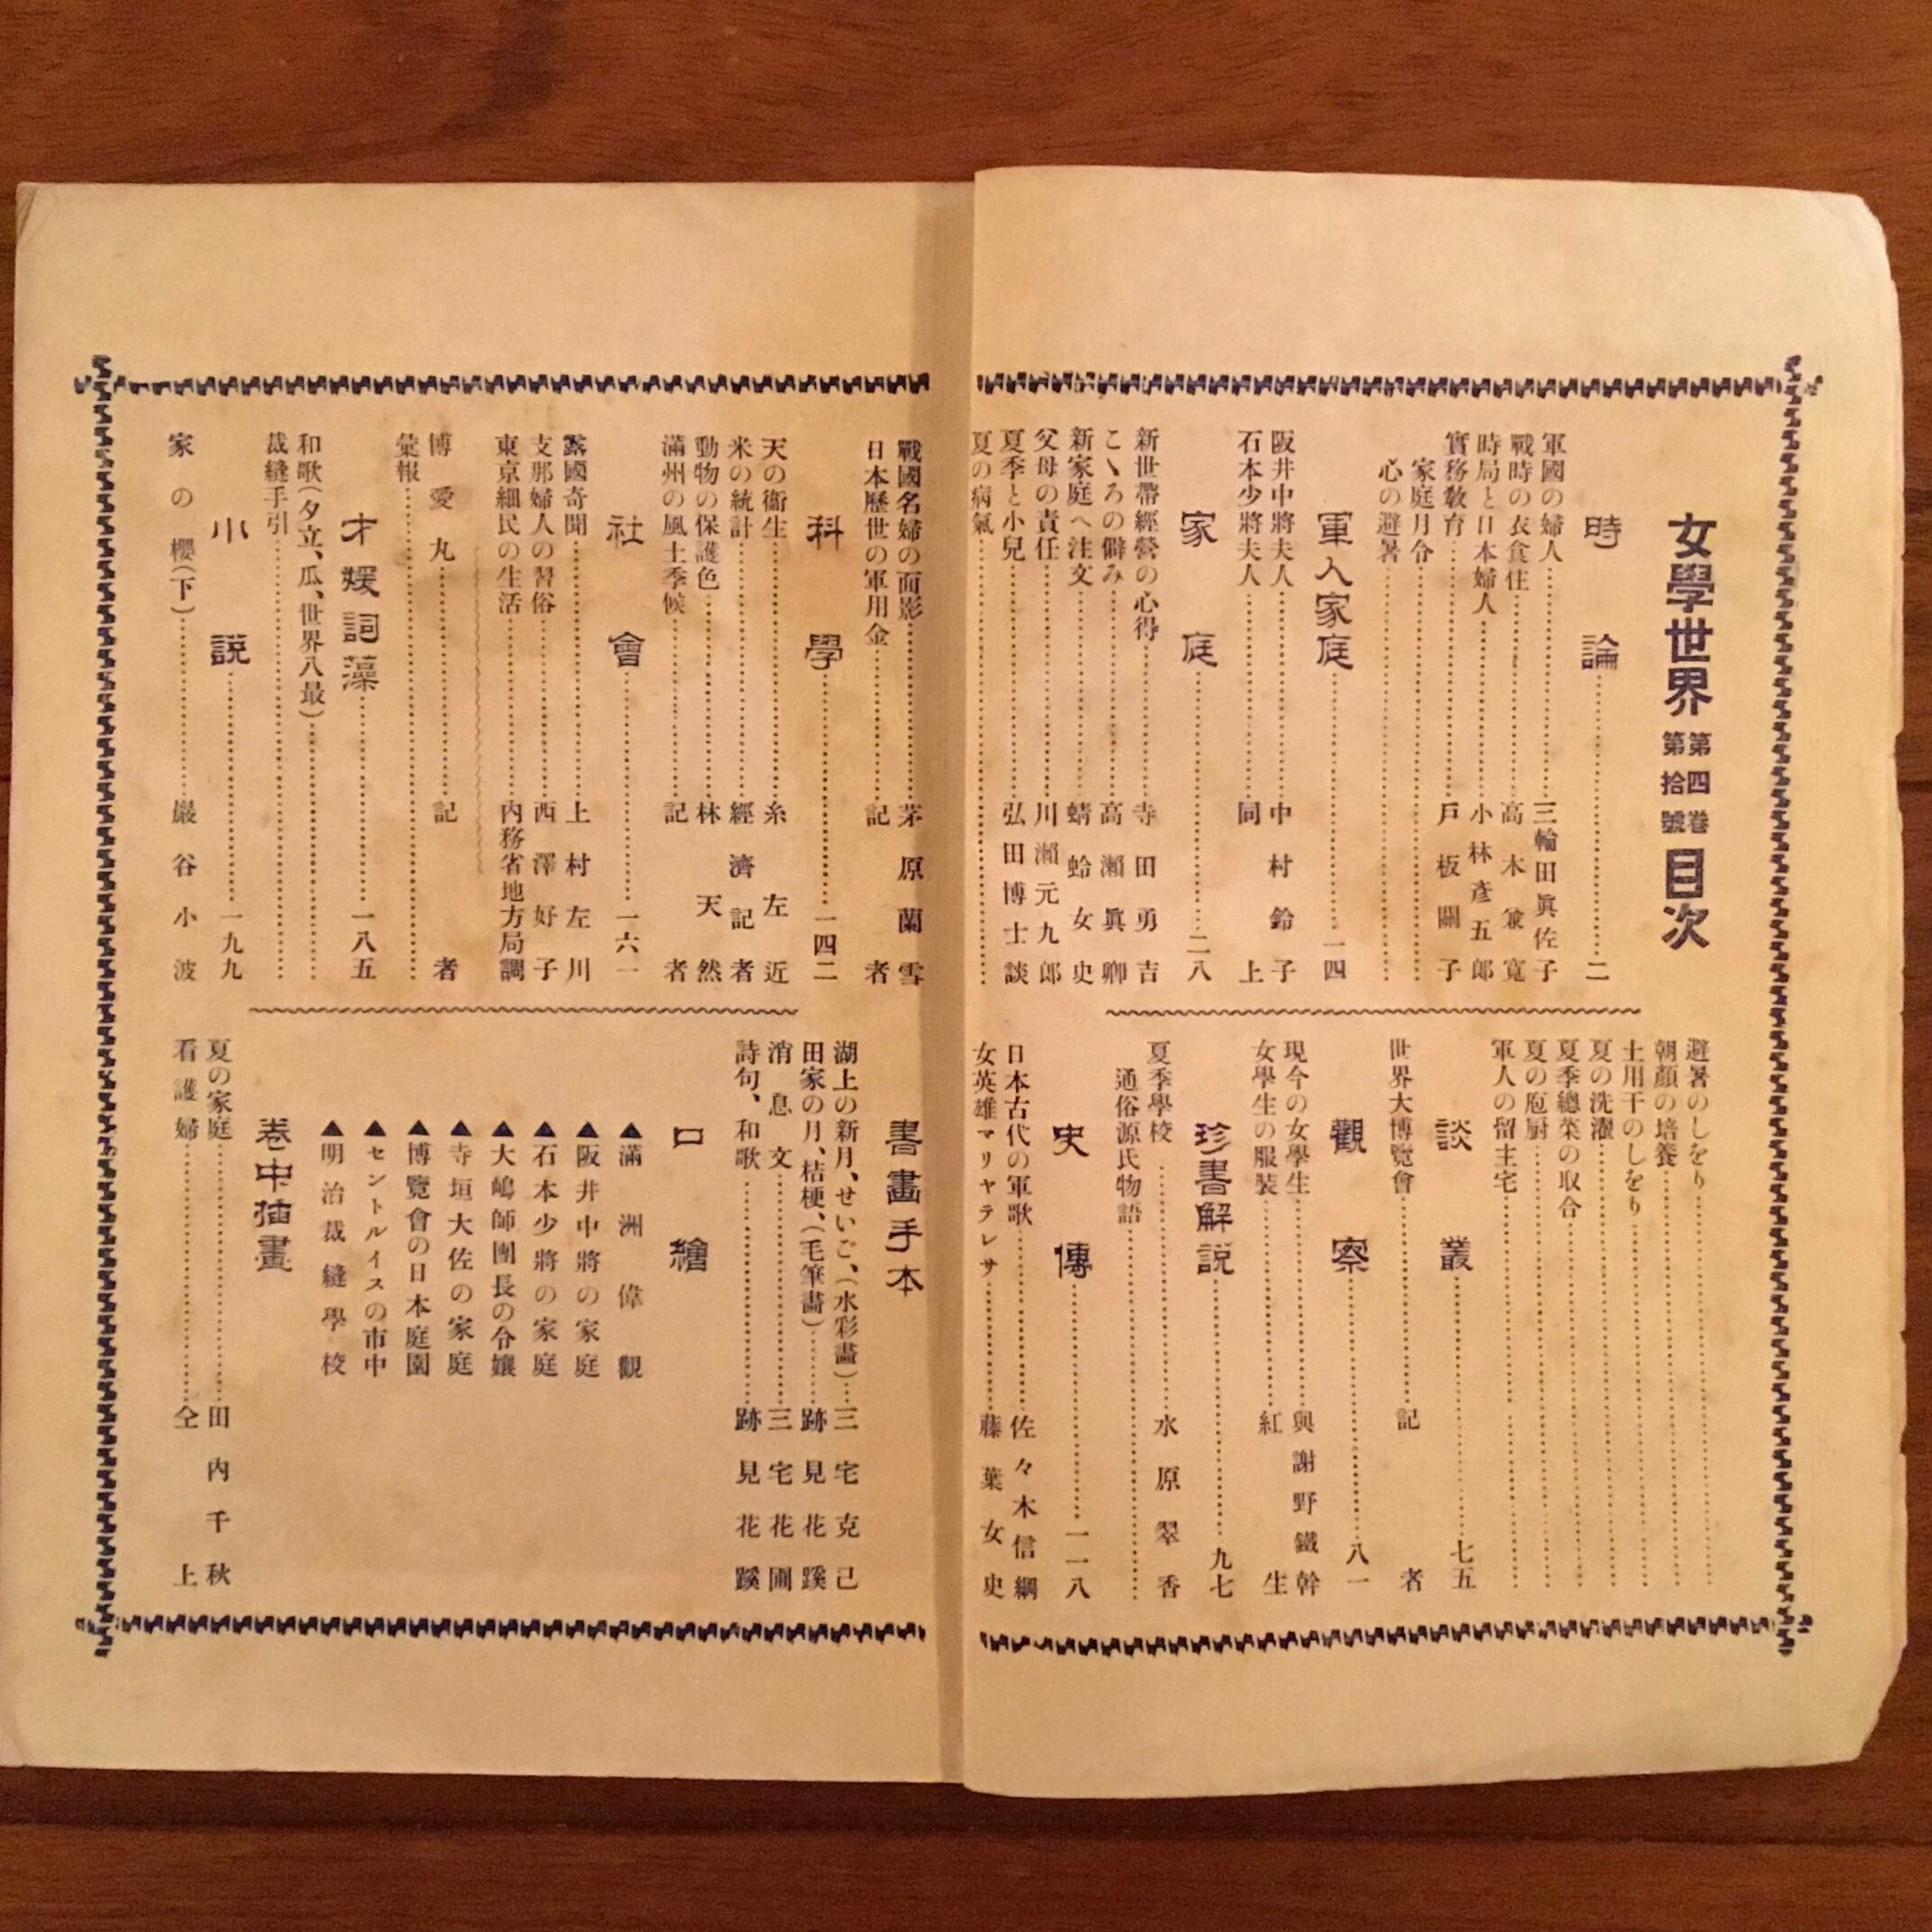 女學世界 第四卷 第拾號 目次
時論……二
軍國の婦人……三輪田眞佐子
戰時の衣食住……高木兼寛
時局と日本婦人……小林彥五郎
實務敎育……戶板關子
家庭月令
心の避暑……
軍人家庭……一四
阪井中將夫人……中村鈴子
石本少將夫人……同上
家庭……二八
新世帶經營の心得……寺田勇吉
こゝろの僻み……高瀨眞卿
新家庭へ注文……蜻蛉女史
父母の責任……川瀨元九郎
夏季と小兒……弘田博士談
夏の病氣……
避暑のしをり……
朝顏の培養……
土用干のしをり……
夏の洗濯……
夏季總菜の取合……
夏の庖厨……
軍人の留主宅……
談叢……七五
世界大博覽會……記者
觀察……八一
現今の女學生……與謝野鐵幹
女學生の服裝……紅生
珍書解說……九七
夏季學校……水原翠香
通俗源氏物語……
史傳……一一八
日本古代の軍歌……佐々木信綱
女英雄マリヤテレサ……藤葉女史
戰國名婦の面影……茅原蘭雪
日本歷世の軍用金……記者
科學……一四二
天の衞生……糸左近
米の統計……經濟記者
動物の保護色……林天然
滿州の風土季候……記者
社會……一六一
露國奇聞……上村左川
支那婦人の習俗……西澤好子
東京細民の生活……內務省地方局調
博愛丸……記者
彙報……
才媛詞藻……一八五
和歌(夕立、瓜、世界八最)……
裁縫手引……
小說……一九九
家の櫻(下)……巖谷小波
書畫手本
湖上の新月、せいご、(水彩畫)……三宅克己
田家の月、桔梗、(毛筆畫)……跡見花蹊
消息文……三宅花圃
詩句、和歌……跡見花蹊
口繪
▲滿洲偉觀
▲阪井中將の家庭
▲石本少將の家庭
▲大嶋師團長の令孃
▲寺垣大佐の家庭
▲博覽會の日本庭園
▲セントルイスの市中
▲明治裁縫學校
卷中揷畫
夏の家庭……田內千秋
看護婦……仝上